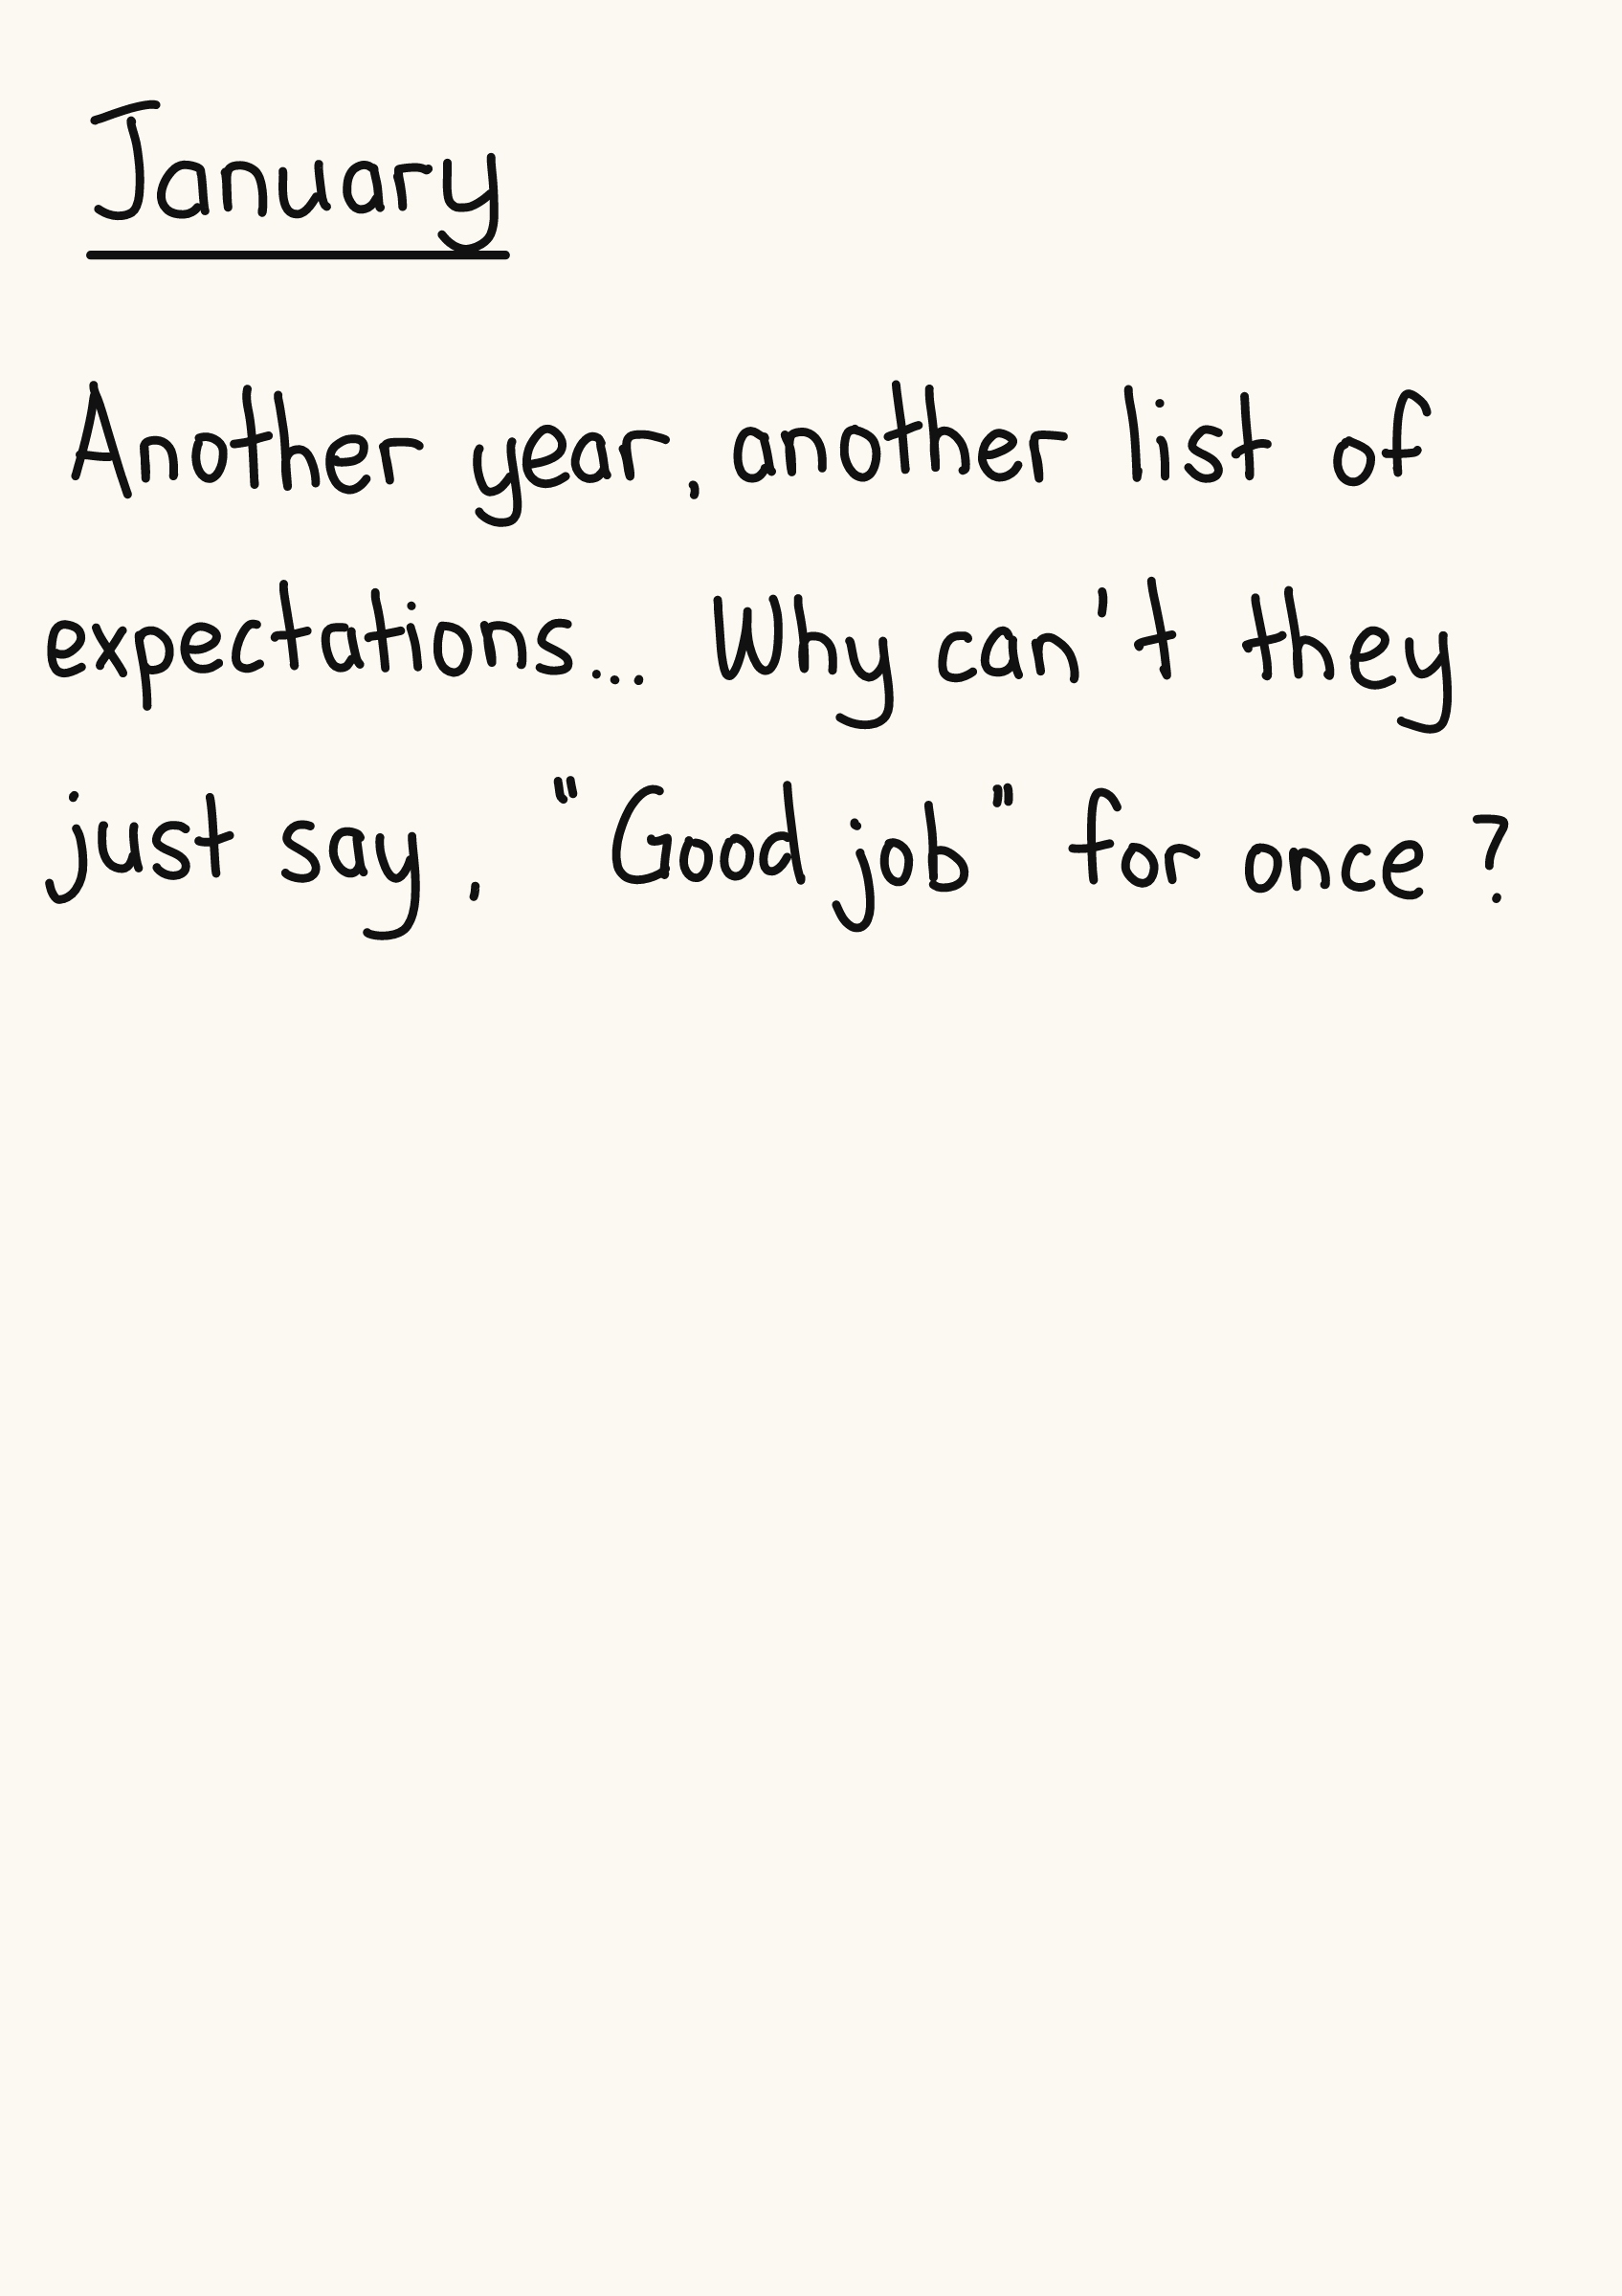 January
Another year, another list of
expectations... Why can't they
just say, "Good job" for once?